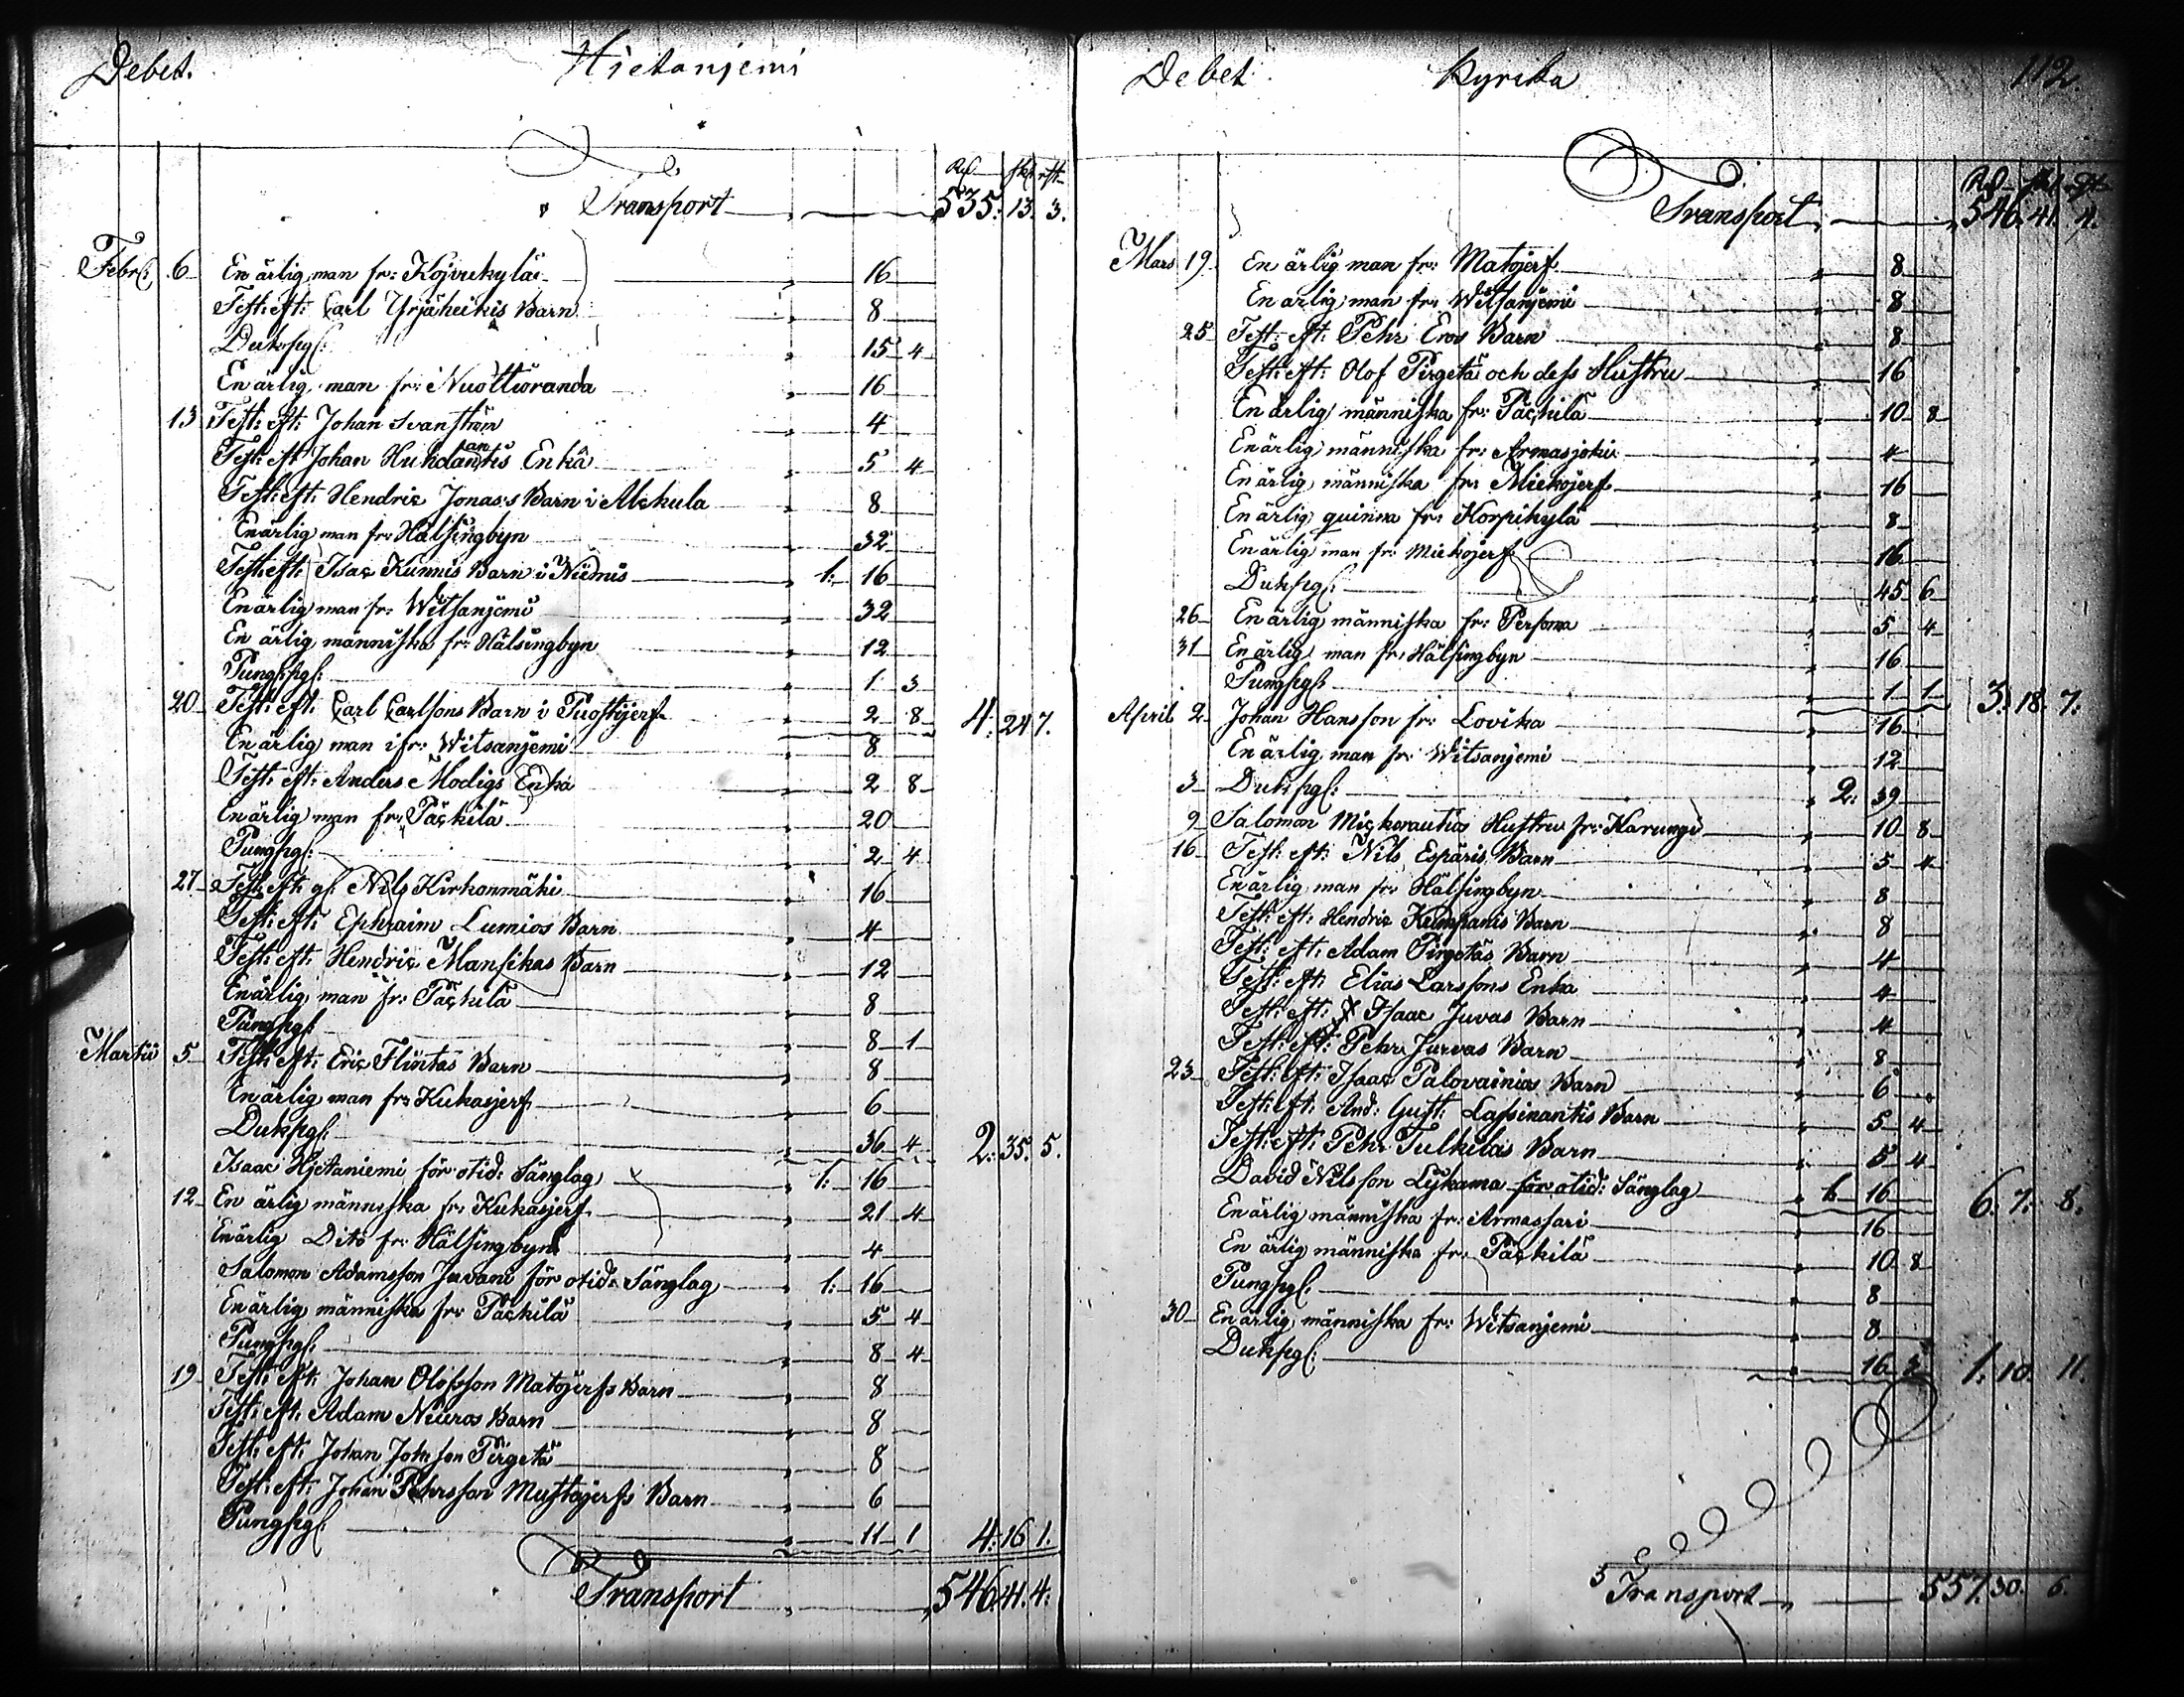 Debet. Hietanjemi
Rd sk rst
Transport 535: 13. 3.
Febr: 6 En ärlig man fr: Kojvukylä 16
Test: eft: Carl Yrjäheikis Barn 8
Dukpgr: 15 4
En ärlig man fr: Nuottioranda 16
13 Test: eft: Johan Svanström 4
Test: eft Johan Huhdantis Enka 5 4
Test: eft: Hendric Jonas:s Barn i Alckula 8
En ärlig man fr: Hälsingbyn 32
Test: eft: Isac Kunnis Barn i Niemis 1: 16
En ärlig man fr: Witsanjemi 32
En ärlig människa fr: Hälsingbyn 12
Pungpgr: 1 3
20 Test: eft: Carl Carlsons Barn i Puostijerf 2 8 4: 24 7.
En ärlig man ifr: Witsanjemi 8
Test: eft: Anders Modigs Enka 2 8
En ärlig man fr: Päckilä 20
Pungpgr: 2 4
27 Test: eft: gl: Nils Kirkonmäki 16
Test: eft: Ephraim Lumios Barn 4
Test: eft: Hendric Mansikas Barn 12
En ärlig man fr: Päckilä 8
Pungpgr: 8 1
Martii 5 Test: eft: Eric Flintas Barn 8
En ärlig man fr: Kukasjerf 6
Dukpgr: 36 4 2: 35. 5.
Isaac Hjetaniemi för otid: Sänglag 1: 16
12 En ärlig människa fr: Kukasjerf 21 4
En ärlig Dito fr: Hälsingbyn 4
Salomon Adamsson Juvani för otid: Sänglag 1: 16
En ärlig människa fr: Päckilä 5 4
Pungpgr: 8 4
19 Test: eft: Johan Olofsson Matojerfs Barn 8
Test: eft: Adam Niuros Barn 8
Test: eft: Johan Johnson Pirgetä 8
Test: eft: Johan Pehrsson Mustajerfs Barn 6
Pungpgr: 11 1 4: 16 1.
Transport 546. 41. 4.
Debet Kyrcka 112.
Rd sk rst
Transport 546. 41. 4.
Mars 19. En ärlig man fr: Matojerf 8
En ärlig man fr: Witsanjemi 8
25 Test: eft: Pehr Eros Barn 8
Test: eft: Olof Pirgetä och dess Hustru 16
En ärlig människa fr: Päckilä 10 8
En ärlig människa fr: Armasjoki 4
En ärlig människa fr: Miekojerf 16
En ärlig quinna fr: Korpikylä 8
En ärlig man fr: Miekojerf 16
Dukpgr: 45 6
26 En ärlig människa fr: Persoma 5 4
31 En ärlig man fr: Hälsingbyn 16
Pungpgr: 1 1 3: 18. 7.
April 2 Johan Hansson fr: Lovika 16
En ärlig man fr: Witsanjemi 12
3 Dukpgr: 2: 39
9 Salomon Mickorautios Hustru fr: Karungi 10 8
16 Test: eft: Nils Espäris Barn 5 4
En ärlig man fr: Hälsingbyn 8
Test: eft: Hendric Kumpanis Barn 8
Test: eft: Adam Pirgetäs Barn 4
Test: eft: Elias Larssons Enka 4
Test: eft: Isaac Juvas Barn 4
Test: eft: Pehr Jurvas Barn 8
23 Test: eft: Isaac Palovainios Barn 6
Test: eft: And: Gust: Lassinantis Barn 5 4
Test: eft: Pehr Tulkilas Barn 5 4
David Nilsson Lykama för otid: Sänglag 1. 16 6: 7: 8.
En ärlig människa fr: Armassari 16
En ärlig människa fr: Päckilä 10 8
Pungpgr: 8
30 En ärlig människa fr: Witsanjemi 8
Dukpgr: 16 3 1: 10 11.
Transport 557. 30. 6.